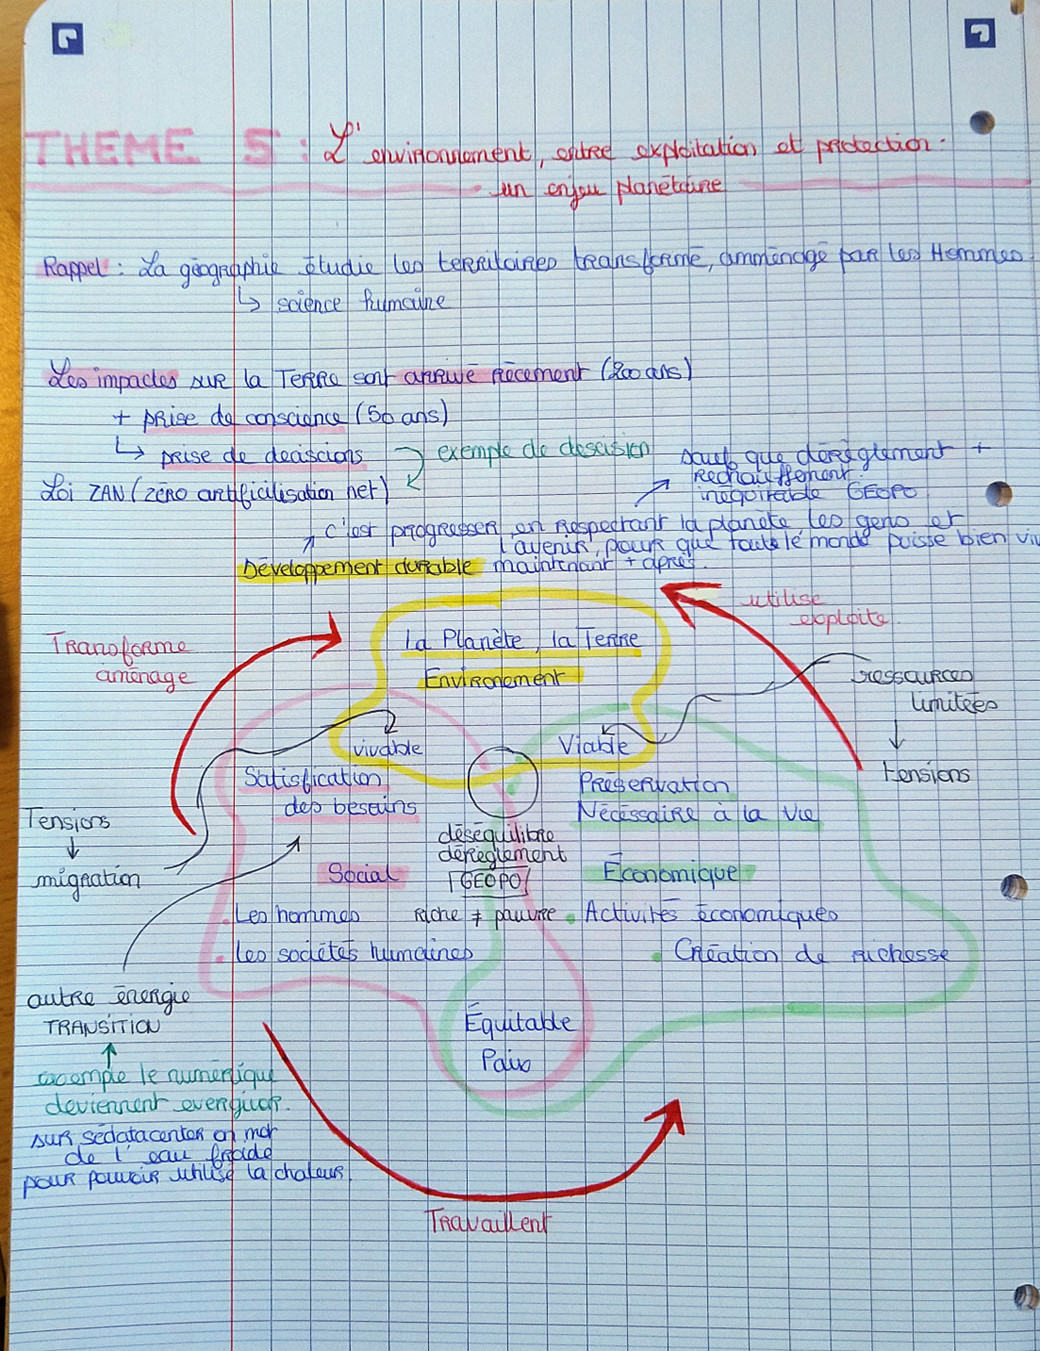 THEME 5 : L'environnement, entre exploitation et protection :
un enjeu planétaire
Rappel : La géographie étudie les territoires transformé, amménagé par les Hommes
↳ science humaine
Les impactes sur la Terre sont arrivé récement (200 ans)
+ prise de conscience (50 ans)
↳ prise de deciscions
exemple de descision
Loi ZAN (zéro artificilisation net)
sauf que dérèglement +
Rechauffement
inéquitable GEOPO
c'est progresser en respectant la planète les gens et
l'avenir, pour que toute le monde puisse bien viv
Développement durable maintenant + après.
utilise
exploite.
Transforme
aménage
La Planète, la Terre
Environement
ressources
limitées
↓
tensions
vivable
Viable
Satisfication
des besoins
Préservation
Nécéssaire à la vie
Tensions
↓
migration
déséquilibre
dérèglement
GEOPO
Riche ≠ pauvre
Social
Économique
Les hommes
les sociétés humaines
Activités économiques
Création de richesse
autre énergie
TRANSITION
Équitable
Paix
exemple le numérique
deviennent
sur
de l'eau froide
pour pouvoir utilisé la chaleur.
Travaillent